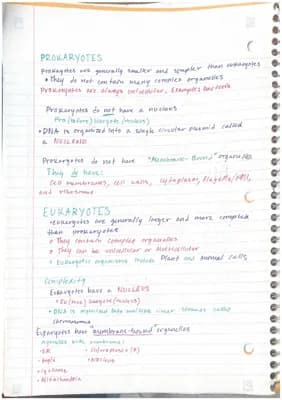 PROKARYOTES
Prokaryotes are generally smaller and simpler than eukaryotes
• They do not contain many complex organelles
Prokaryotes are always unicellular. Examples bacteria
Prokaryotes do not have a nucleus
Pro (before) karyote (nucleus)
• DNA is organized into a single circular plasmid called
a NUCLEOID
Prokaryotes do not have "Membrane-Bound" organelles
They do have:
Cell membranes, cell walls, cytoplasm, flagella/pili,
and ribosome
EUKARYOTES
• eukaryotes are generally larger and more complex
than prokaryotes
They contain complex organelles
They can be unicellular or multicellular
• Eukaryotic organisms include Plant and animal cells
Complexity
Eukaryotes have a NUCLEUS
• Eu (true) karyote (nucleus)
• DNA is organized into multiple linear strands called
chromosome
Eukaryotes have "membrane-bound" organelles
Organelles with membranes:
• ER
• Chloroplasts (P)
• Golgi
• Nucleus
• Lysosome
• Mitochondria